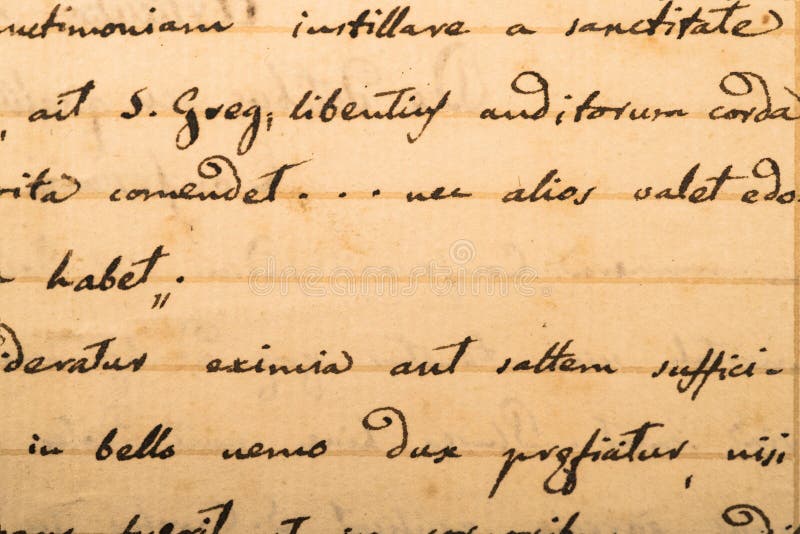 instillare a sanctitate
, ait S. Greg, libentius auditorum corda
comendet . . . nec alios valet edo
habet„.
ideratur eximia aut saltem suffici-
in bello nemo dux prǫficiatur, nisi
dreamstime